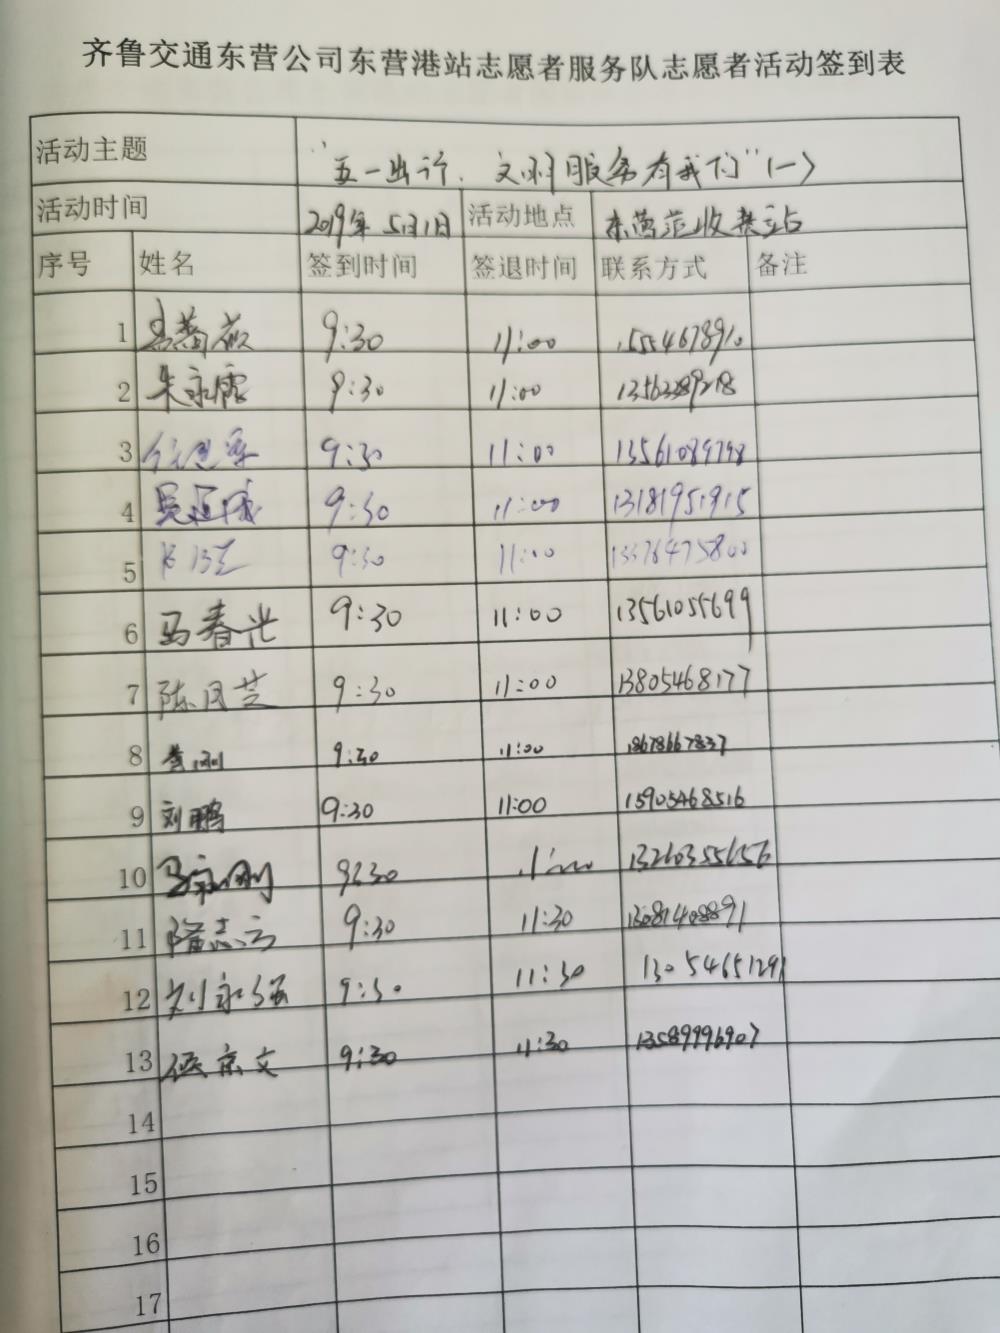 齐鲁交通东营公司东营港站志愿者服务队志愿者活动签到表
活动主题 "五一出行、文明服务有我们"(一)
活动时间 2019年5月1日 活动地点 东营港收费站
序号 姓名 签到时间 签退时间 联系方式 备注
1 9:30 11:00 15554678910
2 朱永霞 9:30 11:00
3 9:30 11:00
4 9:30 11:00 13181951915
5 9:30 11:00 13376475800
6 马春光 9:30 11:00 13561055699
7 陈风芝 9:30 11:00 13805468177
8 9:30 11:00 18678667837
9 刘鹏 9:30 11:00 15905468516
10 马永刚 9:30 13260355656
11 隆志方 9:30 11:30
12 刘永强 9:30 11:30 13054651291
13 侯京文 9:30 11:30 13589996907
14
15
16
17